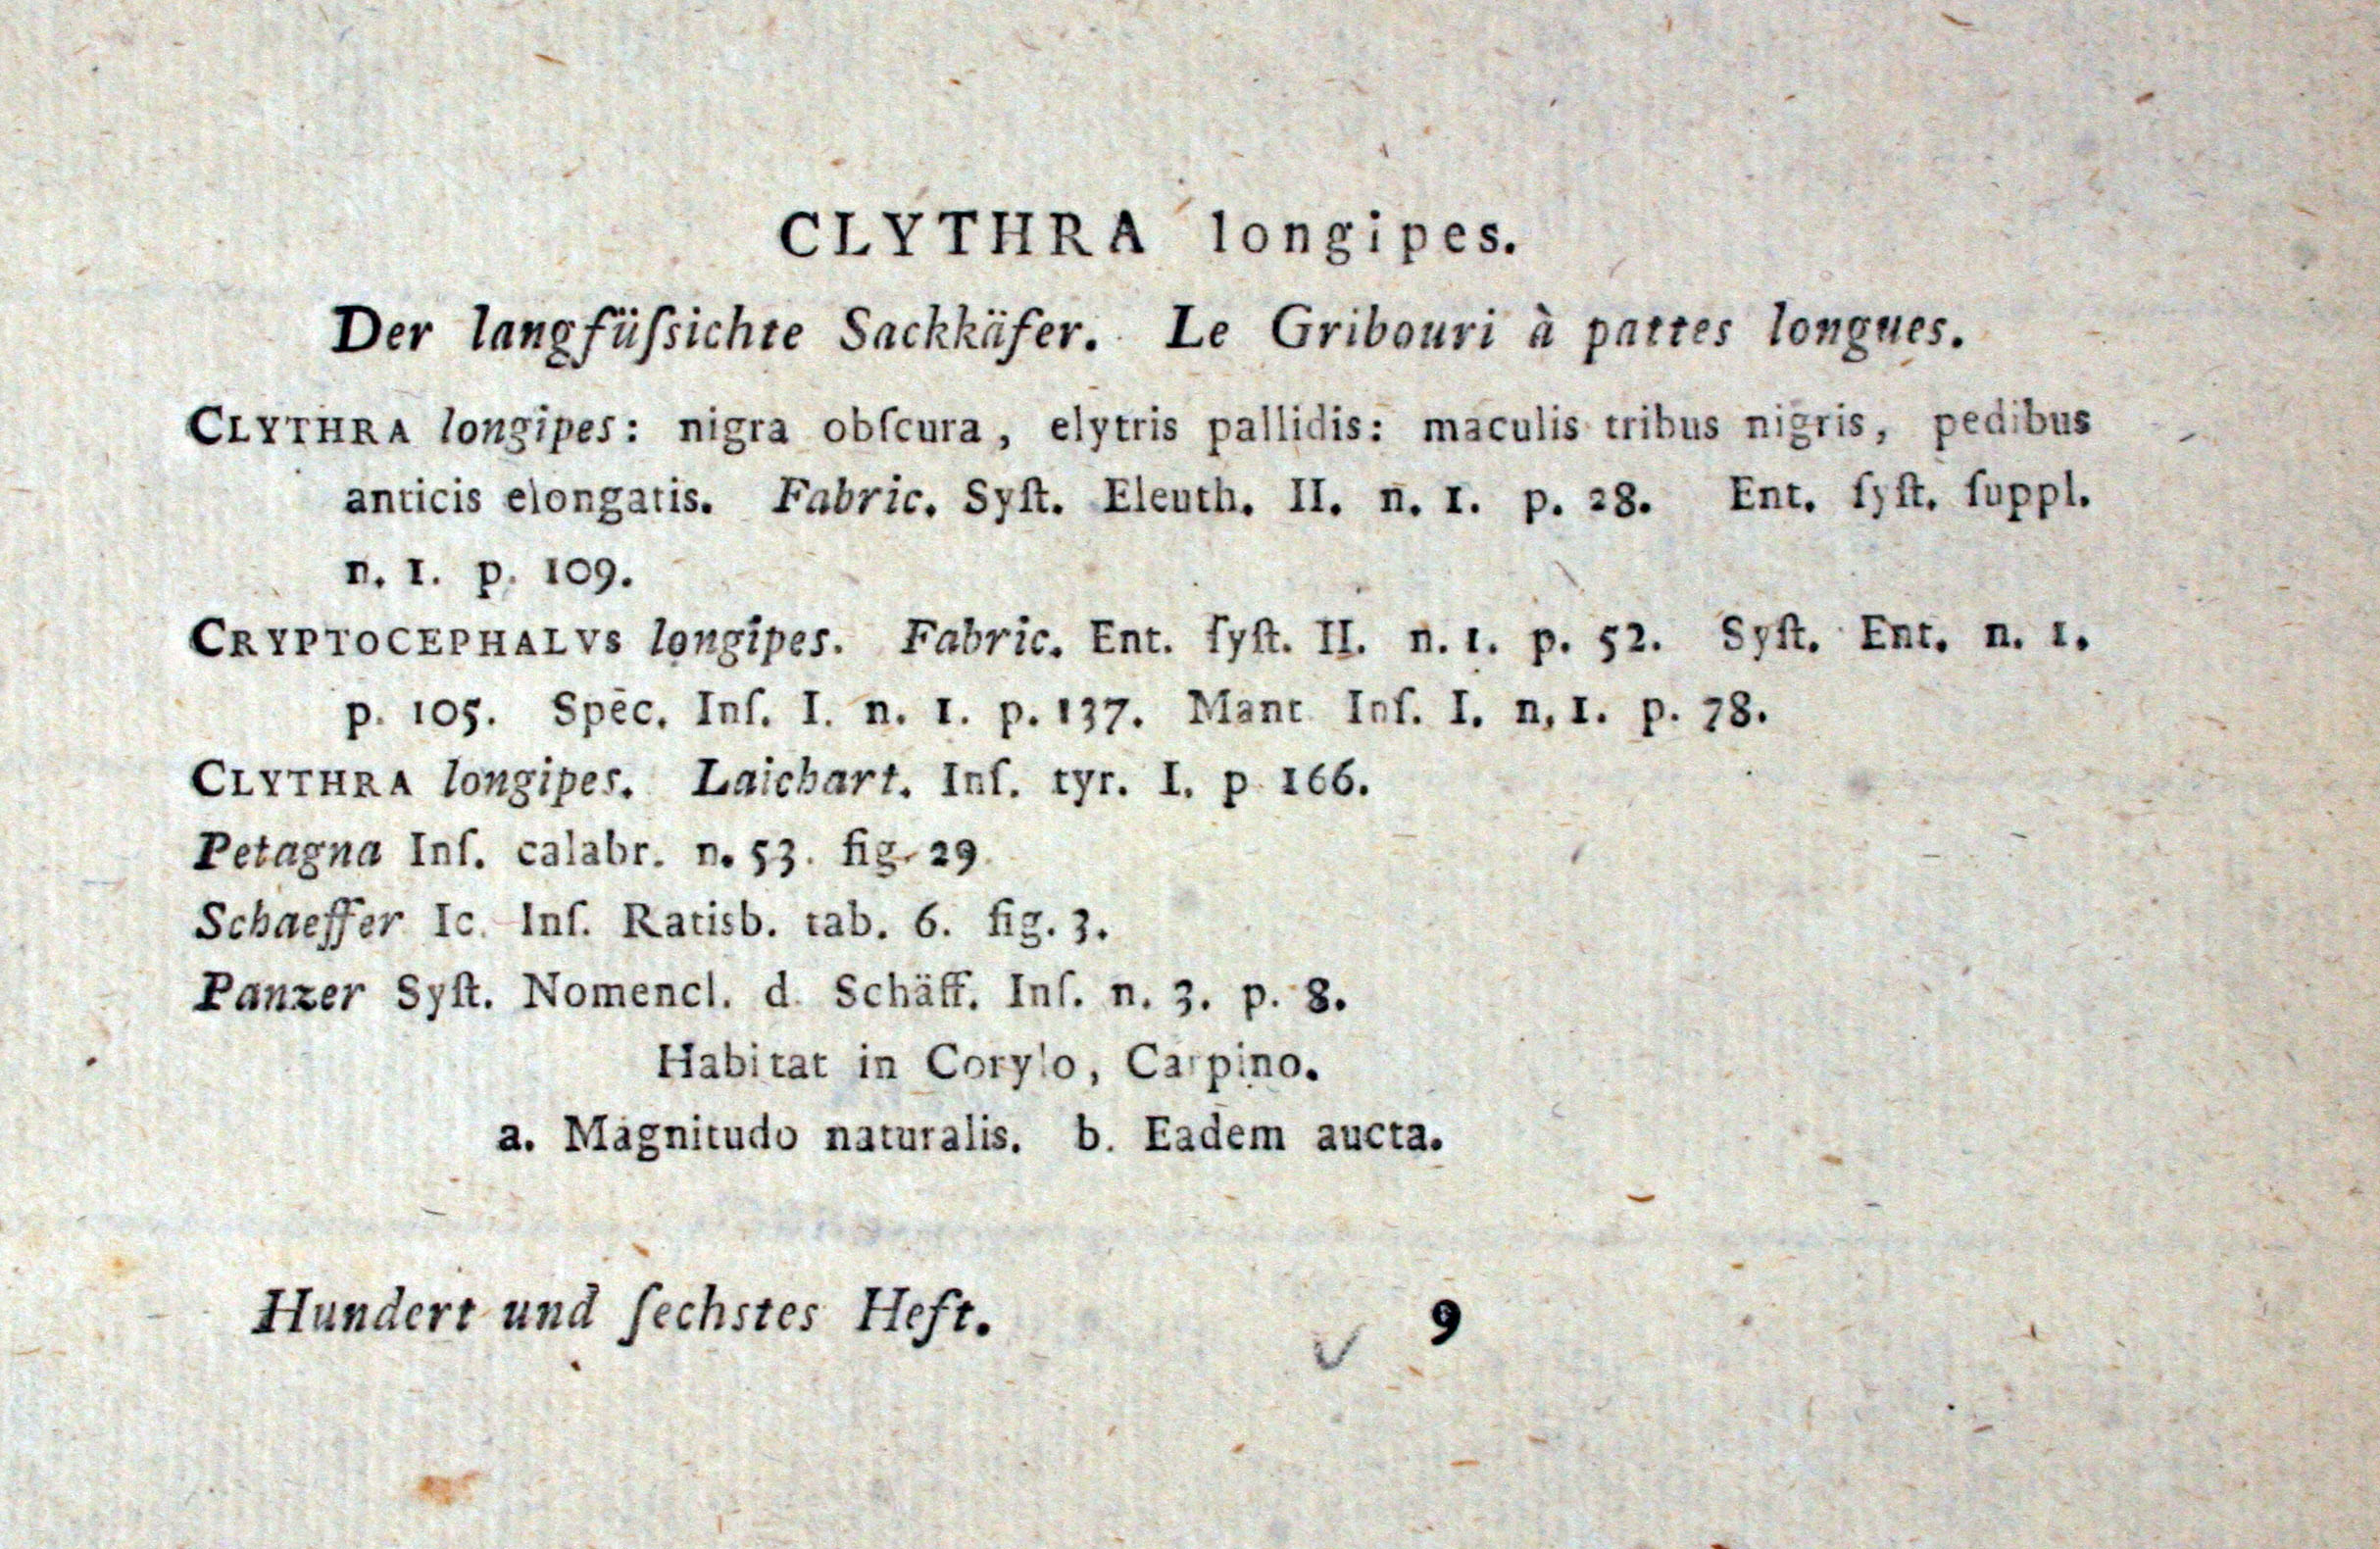 CLYTHRA longipes.
Der langfüſsichte Sackkäfer. Le Gribouri à pattes longues.
CLYTHRA longipes: nigra obſcura, elytris pallidis: maculis tribus nigris, pedibus
anticis elongatis. Fabric. Syſt. Eleuth. II. n. 1. p. 28. Ent. ſyſt. ſuppl.
n. 1. p. 109.
CRYPTOCEPHALVS longipes. Fabric. Ent. ſyſt. II. n. 1. p. 52. Syſt. Ent. n. 1.
p. 105. Spec. Inſ. I. n. 1. p. 137. Mant Inſ. I. n. 1. p. 78.
CLYTHRA longipes. Laichart. Inſ. tyr. I. p 166.
Petagna Inſ. calabr. n. 53. fig. 29.
Schaeffer Ic. Inſ. Ratisb. tab. 6. fig. 3.
Panzer Syſt. Nomencl. d. Schäff. Inſ. n. 3. p. 8.
Habitat in Corylo, Carpino.
a. Magnitudo naturalis. b. Eadem aucta.
Hundert und ſechstes Heft. 9